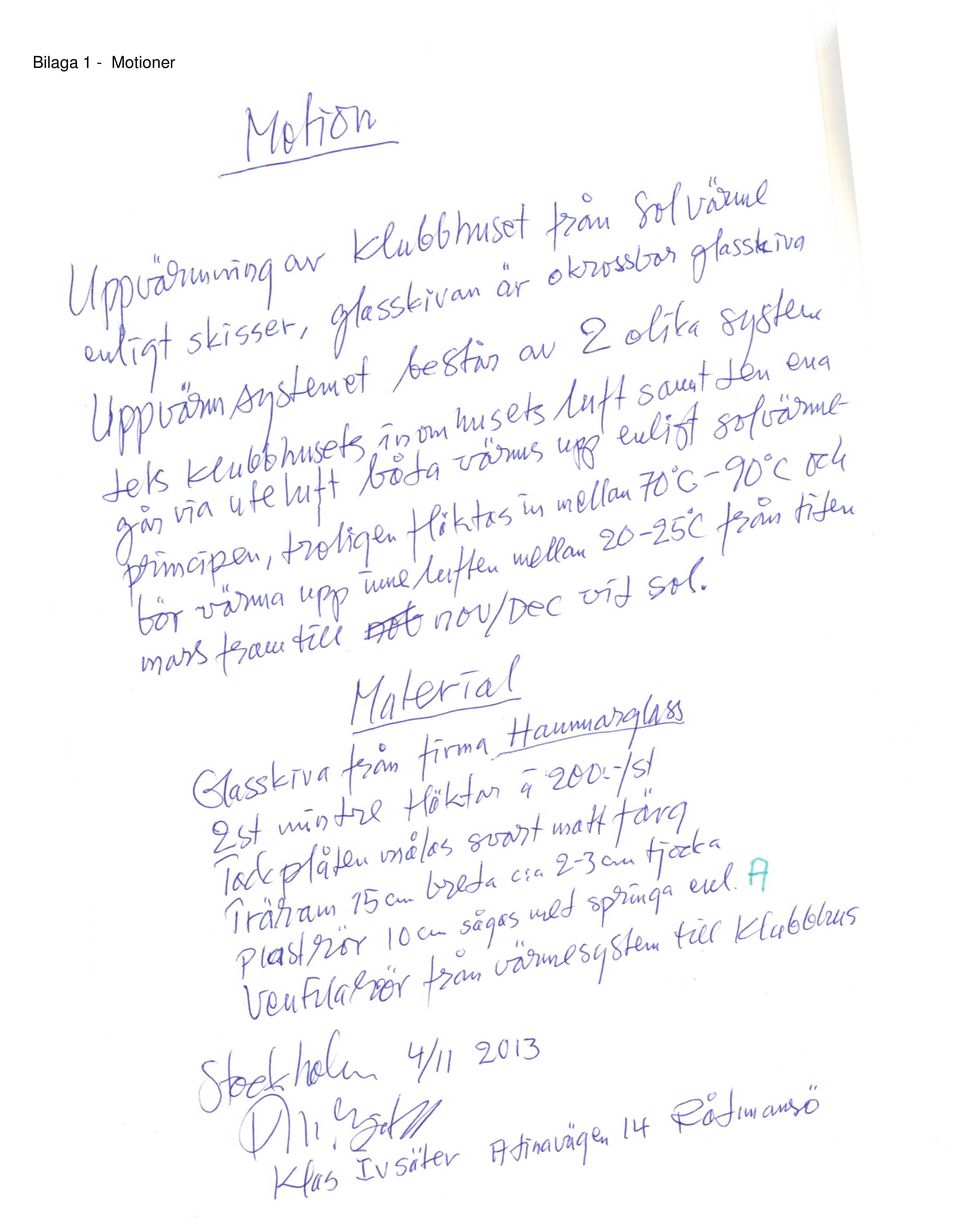 Bilaga 1 - Motioner
Motion
Uppvärmning av klubbhuset från solvärme
enligt skisser, glasskivan är okrossbar glasskiva
Uppvärmsystemet består av 2 olika system
dels klubbhusets inomhusets luft samt den ena
går via uteluft båda värms upp enligt solvärme-
principen, troligen fläktas in mellan 70°C-90°C och
bör värma upp inneluften mellan 20-25°C från tiden
mars fram till nov/Dec vid sol.
Material
Glasskiva från firma Hammarglass
2st mindre fläktar á 200:-/st
Takplåten målas svart matt färg
Träram 15 cm breda c:a 2-3 cm tjocka
Plaströr 10 cm sågas med springa enl. A
Ventilatrör från värmesystem till Klubbhus
Stockholm 4/11 2013
Klas Ivsäter Adinavägen 14 Rådmansö